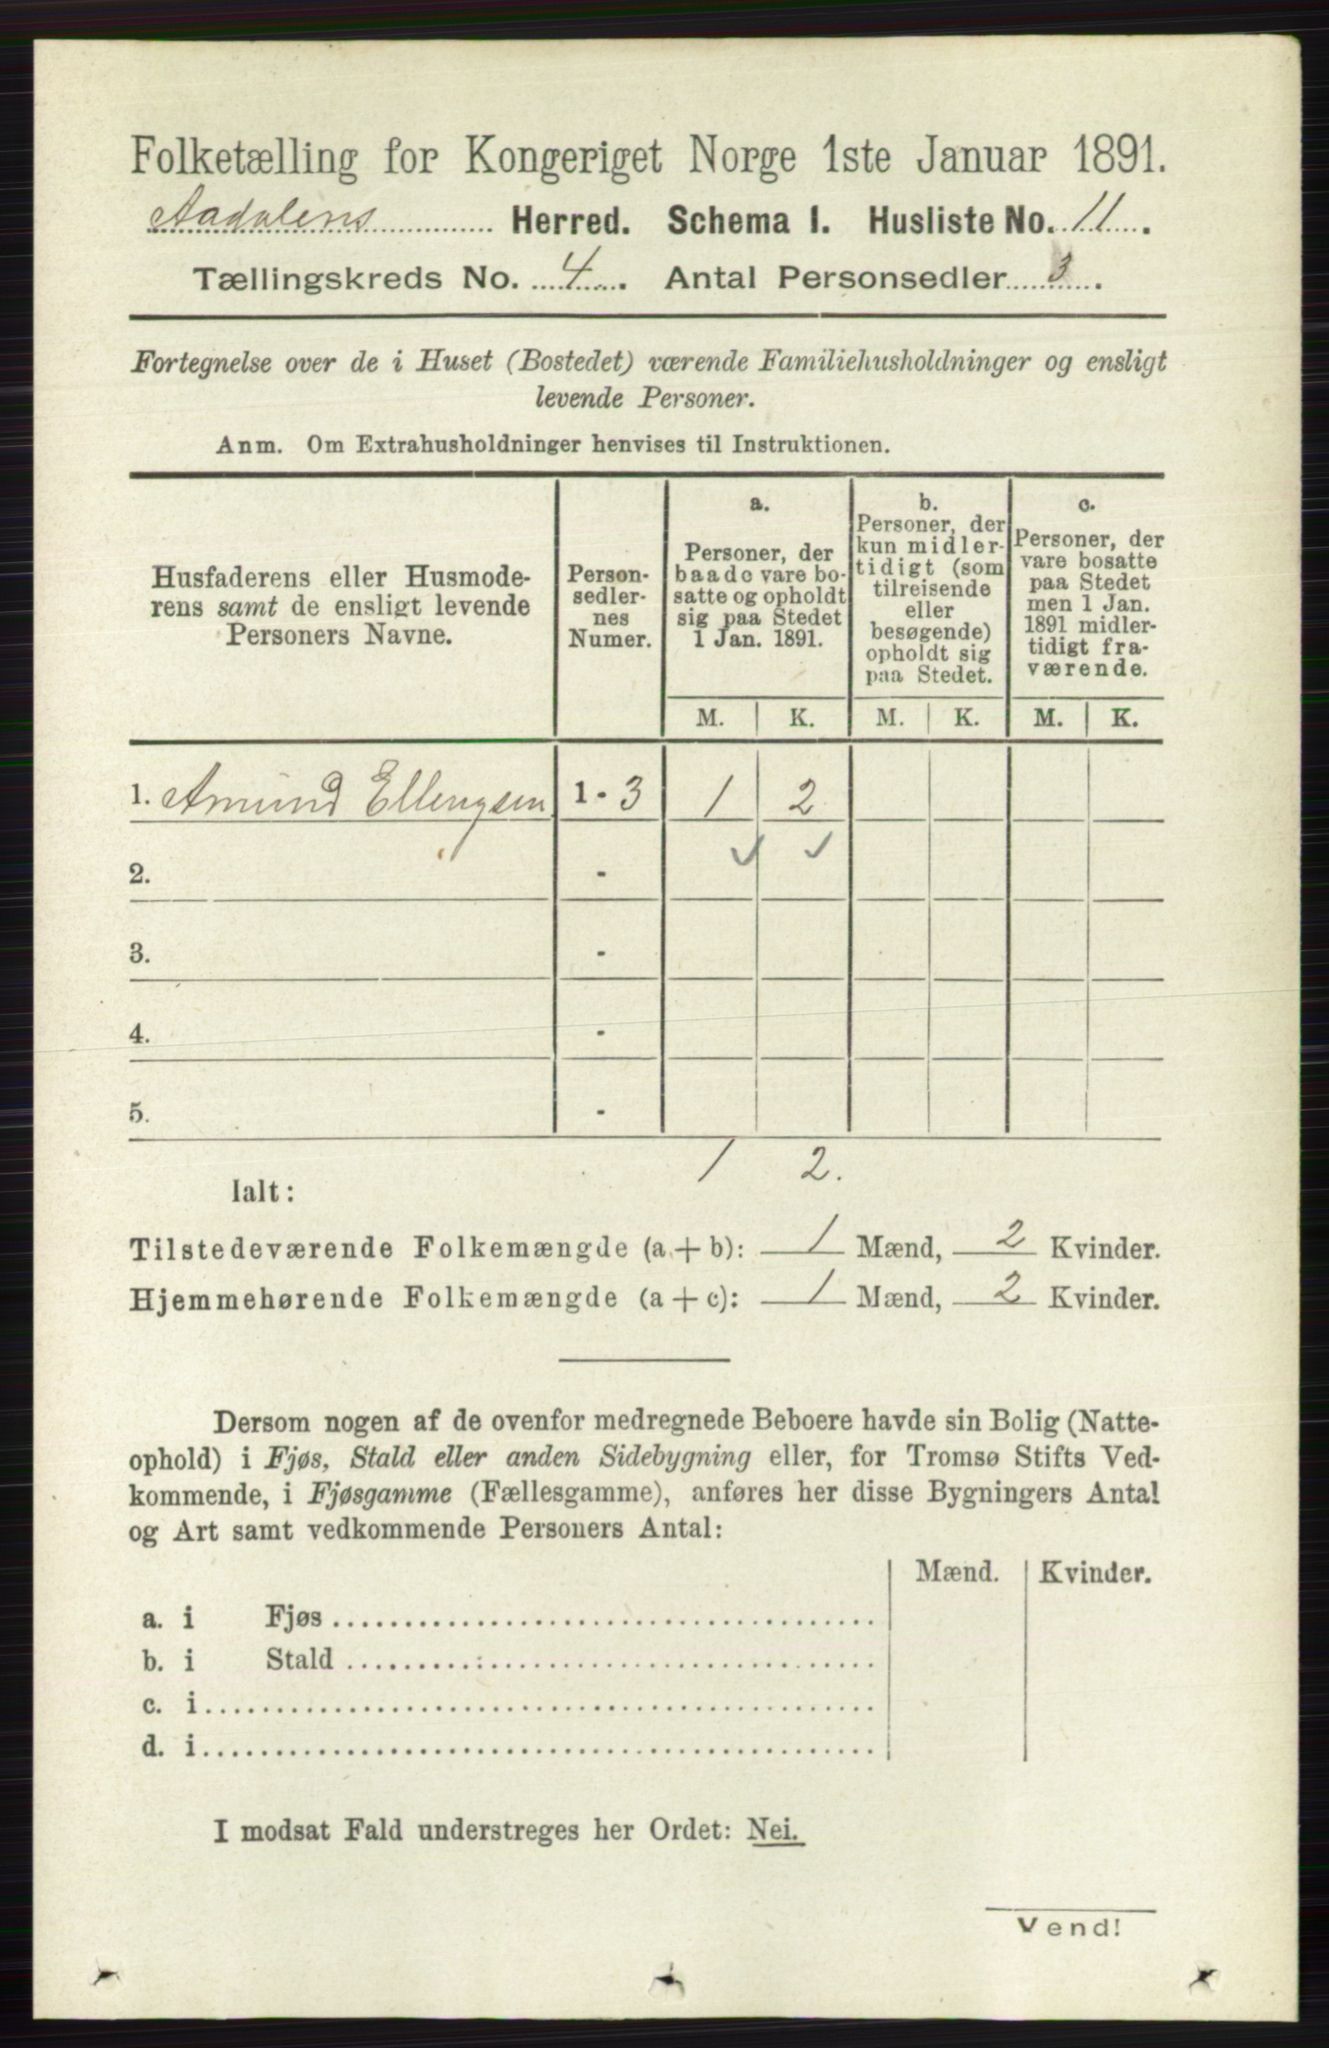 Folketælling for Kongeriget Norge 1ste Januar 1891.
Aadalens Herred. Schema I. Husliste No. 11.
Tællingskreds No. 4. Antal Personsedler 3.
Fortegnelse over de i Huset (Bostedet) værende Familiehusholdninger og ensligt
levende Personer.
Anm. Om Extrahusholdninger henvises til Instruktionen.
Husfaderens eller Husmode-
rens samt de ensligt levende
Personers Navne.
Person-
sedler-
nes
Numer.
a.
Personer, der
baade vare bo-
satte og opholdt
sig paa Stedet
1 Jan. 1891.
b.
Personer, der
kun midler-
tidigt (som
tilreisende
eller
besøgende)
opholdt sig
paa Stedet.
c.
Personer, der
vare bosatte
paa Stedet
men 1 Jan.
1891 midler-
tidigt fra-
værende.
M. K. M. K. M. K.
1. Amund Ellengsen 1 - 3 1 2
2. -
3. -
4. -
5. -
1 2.
Ialt:
Tilstedeværende Folkemængde (a + b): 1 Mænd, 2 Kvinder.
Hjemmehørende Folkemængde (a + c): 1 Mænd, 2 Kvinder.
Dersom nogen af de ovenfor medregnede Beboere havde sin Bolig (Natte-
ophold) i Fjøs, Stald eller anden Sidebygning eller, for Tromsø Stifts Ved-
kommende, i Fjøsgamme (Fællesgamme), anføres her disse Bygningers Antal
og Art samt vedkommende Personers Antal:
Mænd. Kvinder.
a. i Fjøs
b. i Stald
c. i
d. i
I modsat Fald understreges her Ordet: Nei.
Vend!